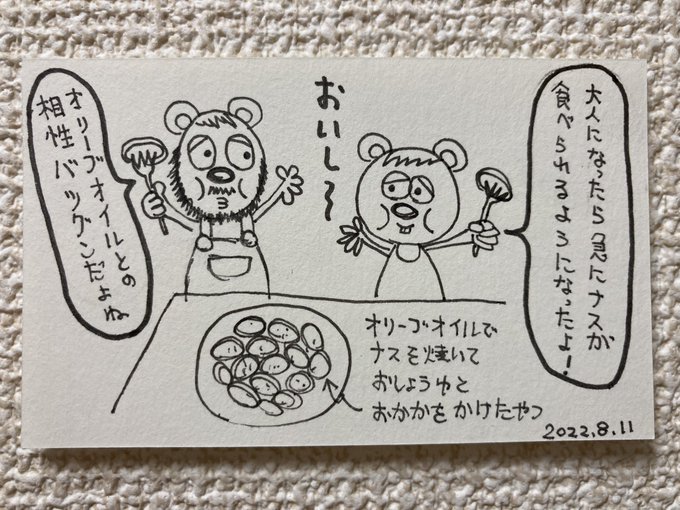 大人になったら急にナスが
食べられるようになったよ!
おいし〜
オリーブオイルとの
相性バツグンだよね
オリーブオイルで
ナスを焼いて
おしょうゆと
おかかをかけたやつ
2022.8.11